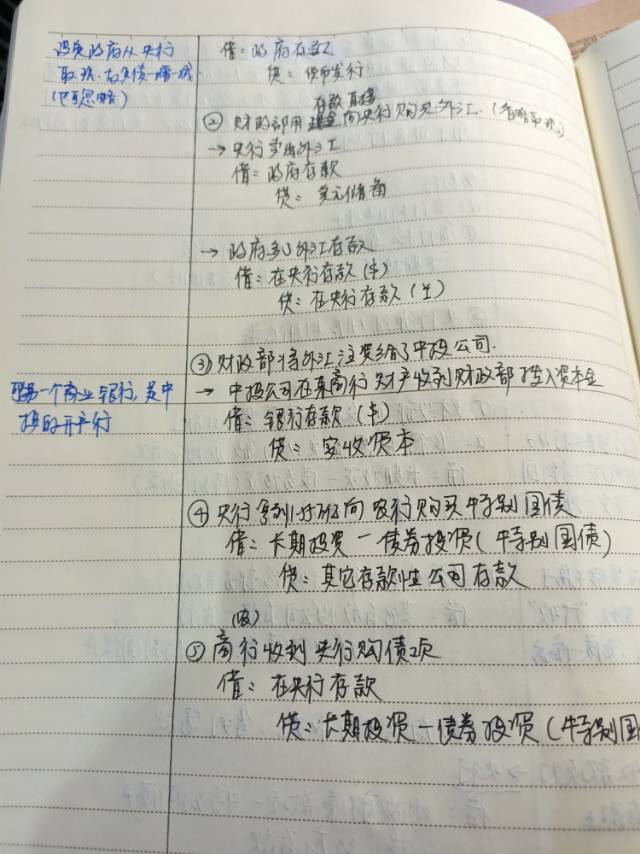 设财政府从央行
取现
(也可忽略)
借：政府存款
贷：货币发行
存款直接
② 财政部用 向央行购买外汇.(省略取现)
→ 央行卖出外汇
借：政府存款
贷：美元储备
→ 政府 外汇存款
借：在央行存款($)
贷：在央行存款(¥)
③ 财政部将外汇注资给了中投公司.
→ 中投公司在某商行 财产收到财政部投入资本金
借：银行存款($)
贷：实收资本
另一个商业银行,是中
投的开户行
④ 央行 向农行购买特别国债
借：长期投资－债券投资(特别国债)
贷：其它存款性公司存款
(农)
⑤ 商行收到央行购债项
借：在央行存款
贷：长期投资－债券投资(特别国